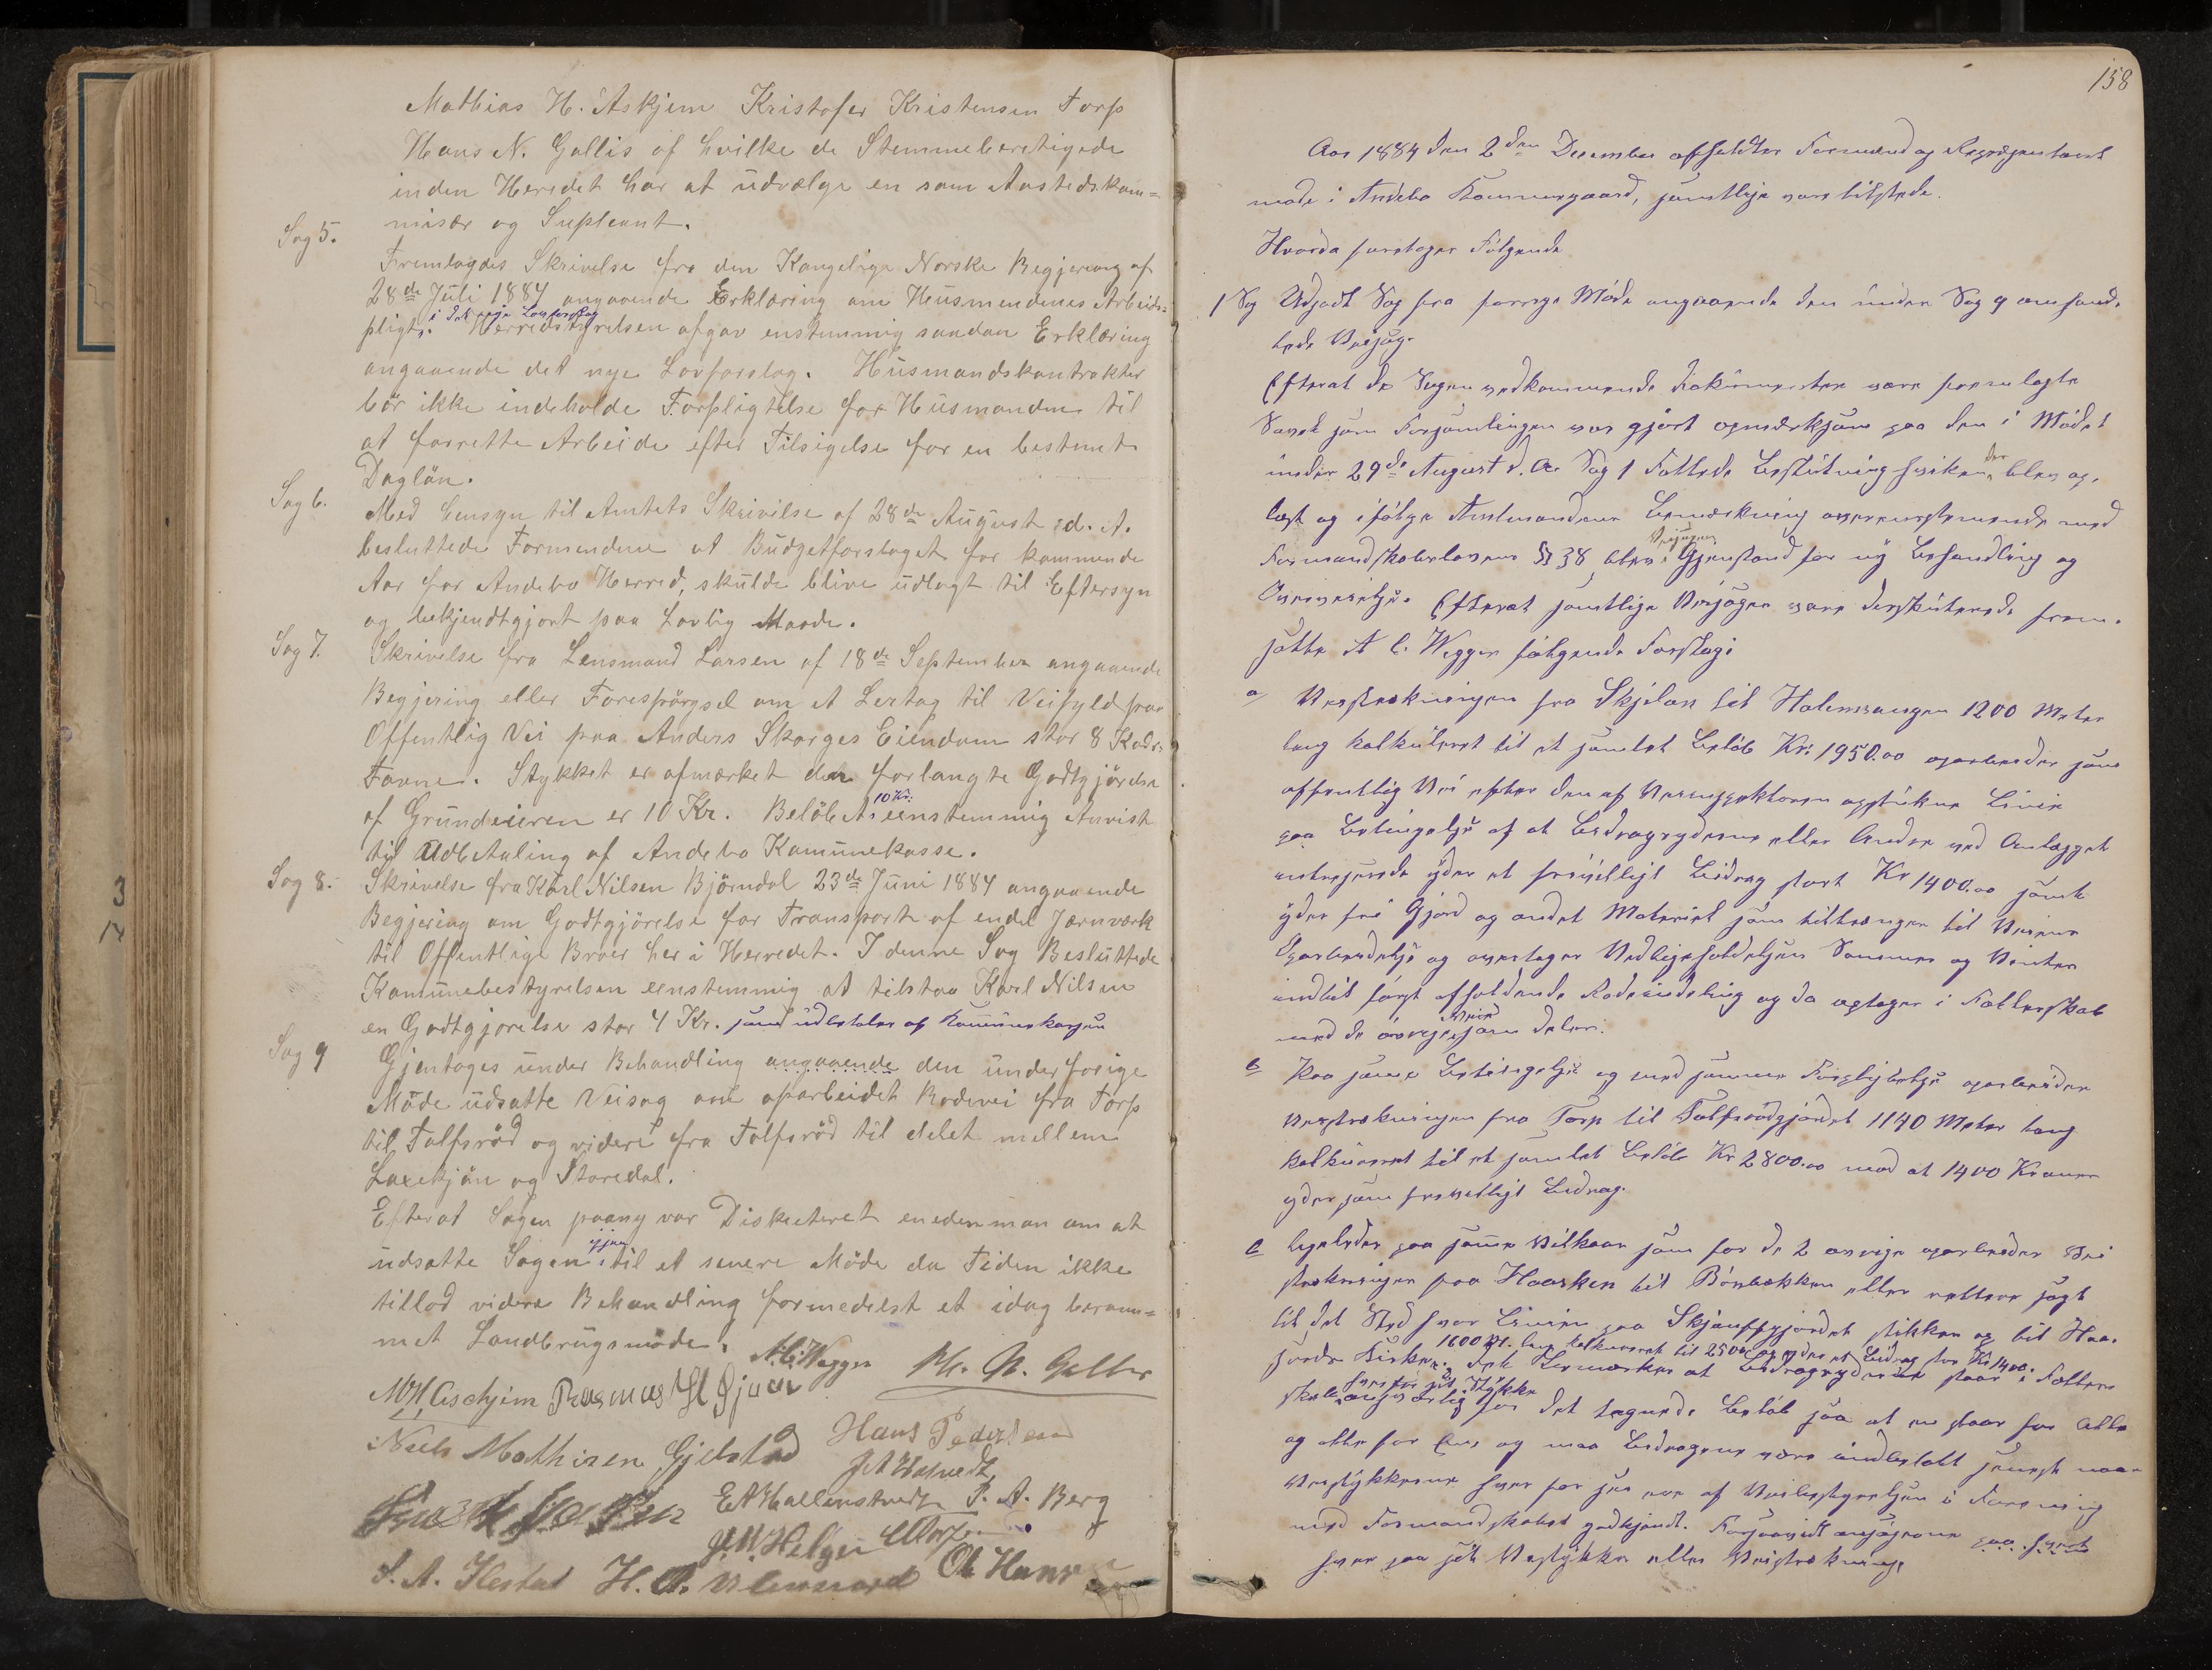 Mathias H. Askjem Kristofer Kristensen Torp
Hans N. Gallis af hvilke de Stemmeberetigede
inden Heredet har at udvælge en som Aastedskom=
misær og Supleant.
Sag 5.
Fremlagdes Skrivelse fra den Kongelige Norske Regjering af
28de Juli 1884 angaaende Erklæring om Husmendenes Arbeids=
pligt i det nye Lovforslag. Herredstyrelsen afgav enstemmig saadan Erklæring
angaaende det nye Lovforslag. Husmandskontrakter
bör ikke indeholde Forpligtelse for Husmanden til
at forrette Arbeide efter Tilsigelse for en bestemt
Daglön.
Sag 6.
Med hensyn til Amtets Skrivilse af 28de August d. A.
besluttede Formendene at Budgetforslaget for kommende
Aar for Andebo Herred, skulde blive udlagt til Eftersyn
og bekjendtgjort paa Lovlig Maade.
Sag 7.
Skrivelse fra Lensmand Larsen af 18de September angaaende
Begjering eller Forespörgsel om et Lertag til Veifyld paa
Offentlig Vei paa Anders Skorges Eiendom stor 8 Kvdr:
Favne. Stykket er afmærket den forlangte Godtgjörelse
af Grundeieren er 10 Kr. Belöbet 10 Kr: eenstemmig Anvist
til Udbetaling af Andebo Kommunekasse.
Sag 8.
Skrivelse fra Karl Nilsen Björndal 23de Juni 1884 angaaende
Begjering om Godtgjörelse for Transport af endel Jernværk
til Offentlige Broer her i Herredet. I denne Sag Besluttede
Komunebestyrelsen eenstemmig at tilstaa Karl Nilsen
en Godtgjorelse stor 4 Kr. som udbetales af Kommunekassen
Sag 9
Gjentages under Behandling angaaende den under forige
Möde udsatte Veisag om oparbeidet Rodevei fra Torp
til Tolfsröd og videre fra Tolfsröd til delet mellem
Laxekjön og Storedal.
Efterat Sagen paany var Diskuteret enedes man om at
udsætte Sagen igjen til et senere Möde da Tiden ikke
tillod videre Behandling formedelst et idag beram=
met Landbrugsmöde.
A. C. Wegger
H. N. Gallis
M H Aschjem Rasmus H Gjuv
Niels Mathisen Gjelstad Hans Pedersen
E A Hallenstvedt P. A. Berg
J. N. Helgen
S. A. Hestad Ole Hansen
158
Aar 1884 den 2den December afholdtes Formænd og Repræsentant
möde i Andebo Kommunegaard, samtlige vare tilstede.
Hvorda foretoges Fölgende
1 Sag Udsadt Sag fra forrige Möde angaaende den under Sag 9 omhand-
lede Veisag.
Efterat de Sagen vedkommende Dokumenter vare fremlagte
Samt som Forsamlingen var gjort opmerksom paa den i Mödet
under 29de August d. A. Sag 1 Fattede Beslutning hvilken der blev op-
læst og ifölge Amtmandens Bemerkning overensstemmende med
Formandskabslovens § 38 blev Veisagen Gjenstand for ny Behandling og
Overveielse. Efterat samtlige Veisager vare diskuterede frem-
satte A C. Wegger fölgende Forslag:
a Veistrekningen fra Skjelan til Holmsvangen 1200 Meter
lang kalkuleret til et samlet Belöb Kr: 1950.00 oparbeides som
offentlig Vei efter den af Veiinspektoren opstukne Linie
paa Betingelse af at Bidragyderne eller Andre ved Anlægget
interesserede yder et frivilligt Bidrag stort Kr 1400.00 samt
yder fri Gjord og andet Materiel som tiltrænges til Veiens
Oparbeidelse og overtager Vedligeholdelsen Sommer og Vinter
indtil först afholdende Rodeinddeling og da optages i Fællesskab
med de övrige Veie som deles.
b Paa samme Betingelse og med samme Forpligtelse oparbeides
Veistrekningen fra Torp til Tolfsrödgjordet 1140 Meter lang
kalkuleret til et samlet Belöb Kr 2800.00 mod at 1400 Kroner
yder som frivilligt Bidrag.
c Ligeledes paa samme Vilkaar som for de 2 övrige oparbeides Vei
strekningen fra Haasken til Bönbækken eller rettere sagt
til det Sted hvor Linien paa Skjauffgjordet stikker op til Haa-
sords Kirke. 1600 M. lang kalkuleret til 2500 og ydes et Bidrag stor Kr 1400.
Det Bemærkes at Bidragyderne staar i Fælles-
skab hver for sit Stykke ansvarlig for det tegnede Belöb saa at en staar for Alle
og alle for Een og maa Bidragene være indbetalt senest naar
Veistykkerne hver for sig er af Veibestyrelsen i Forening
med Formandskabet godkjendt. Forsaavidt ansögerne paa hvert
hver paa sit Veistykke eller Veistrekning